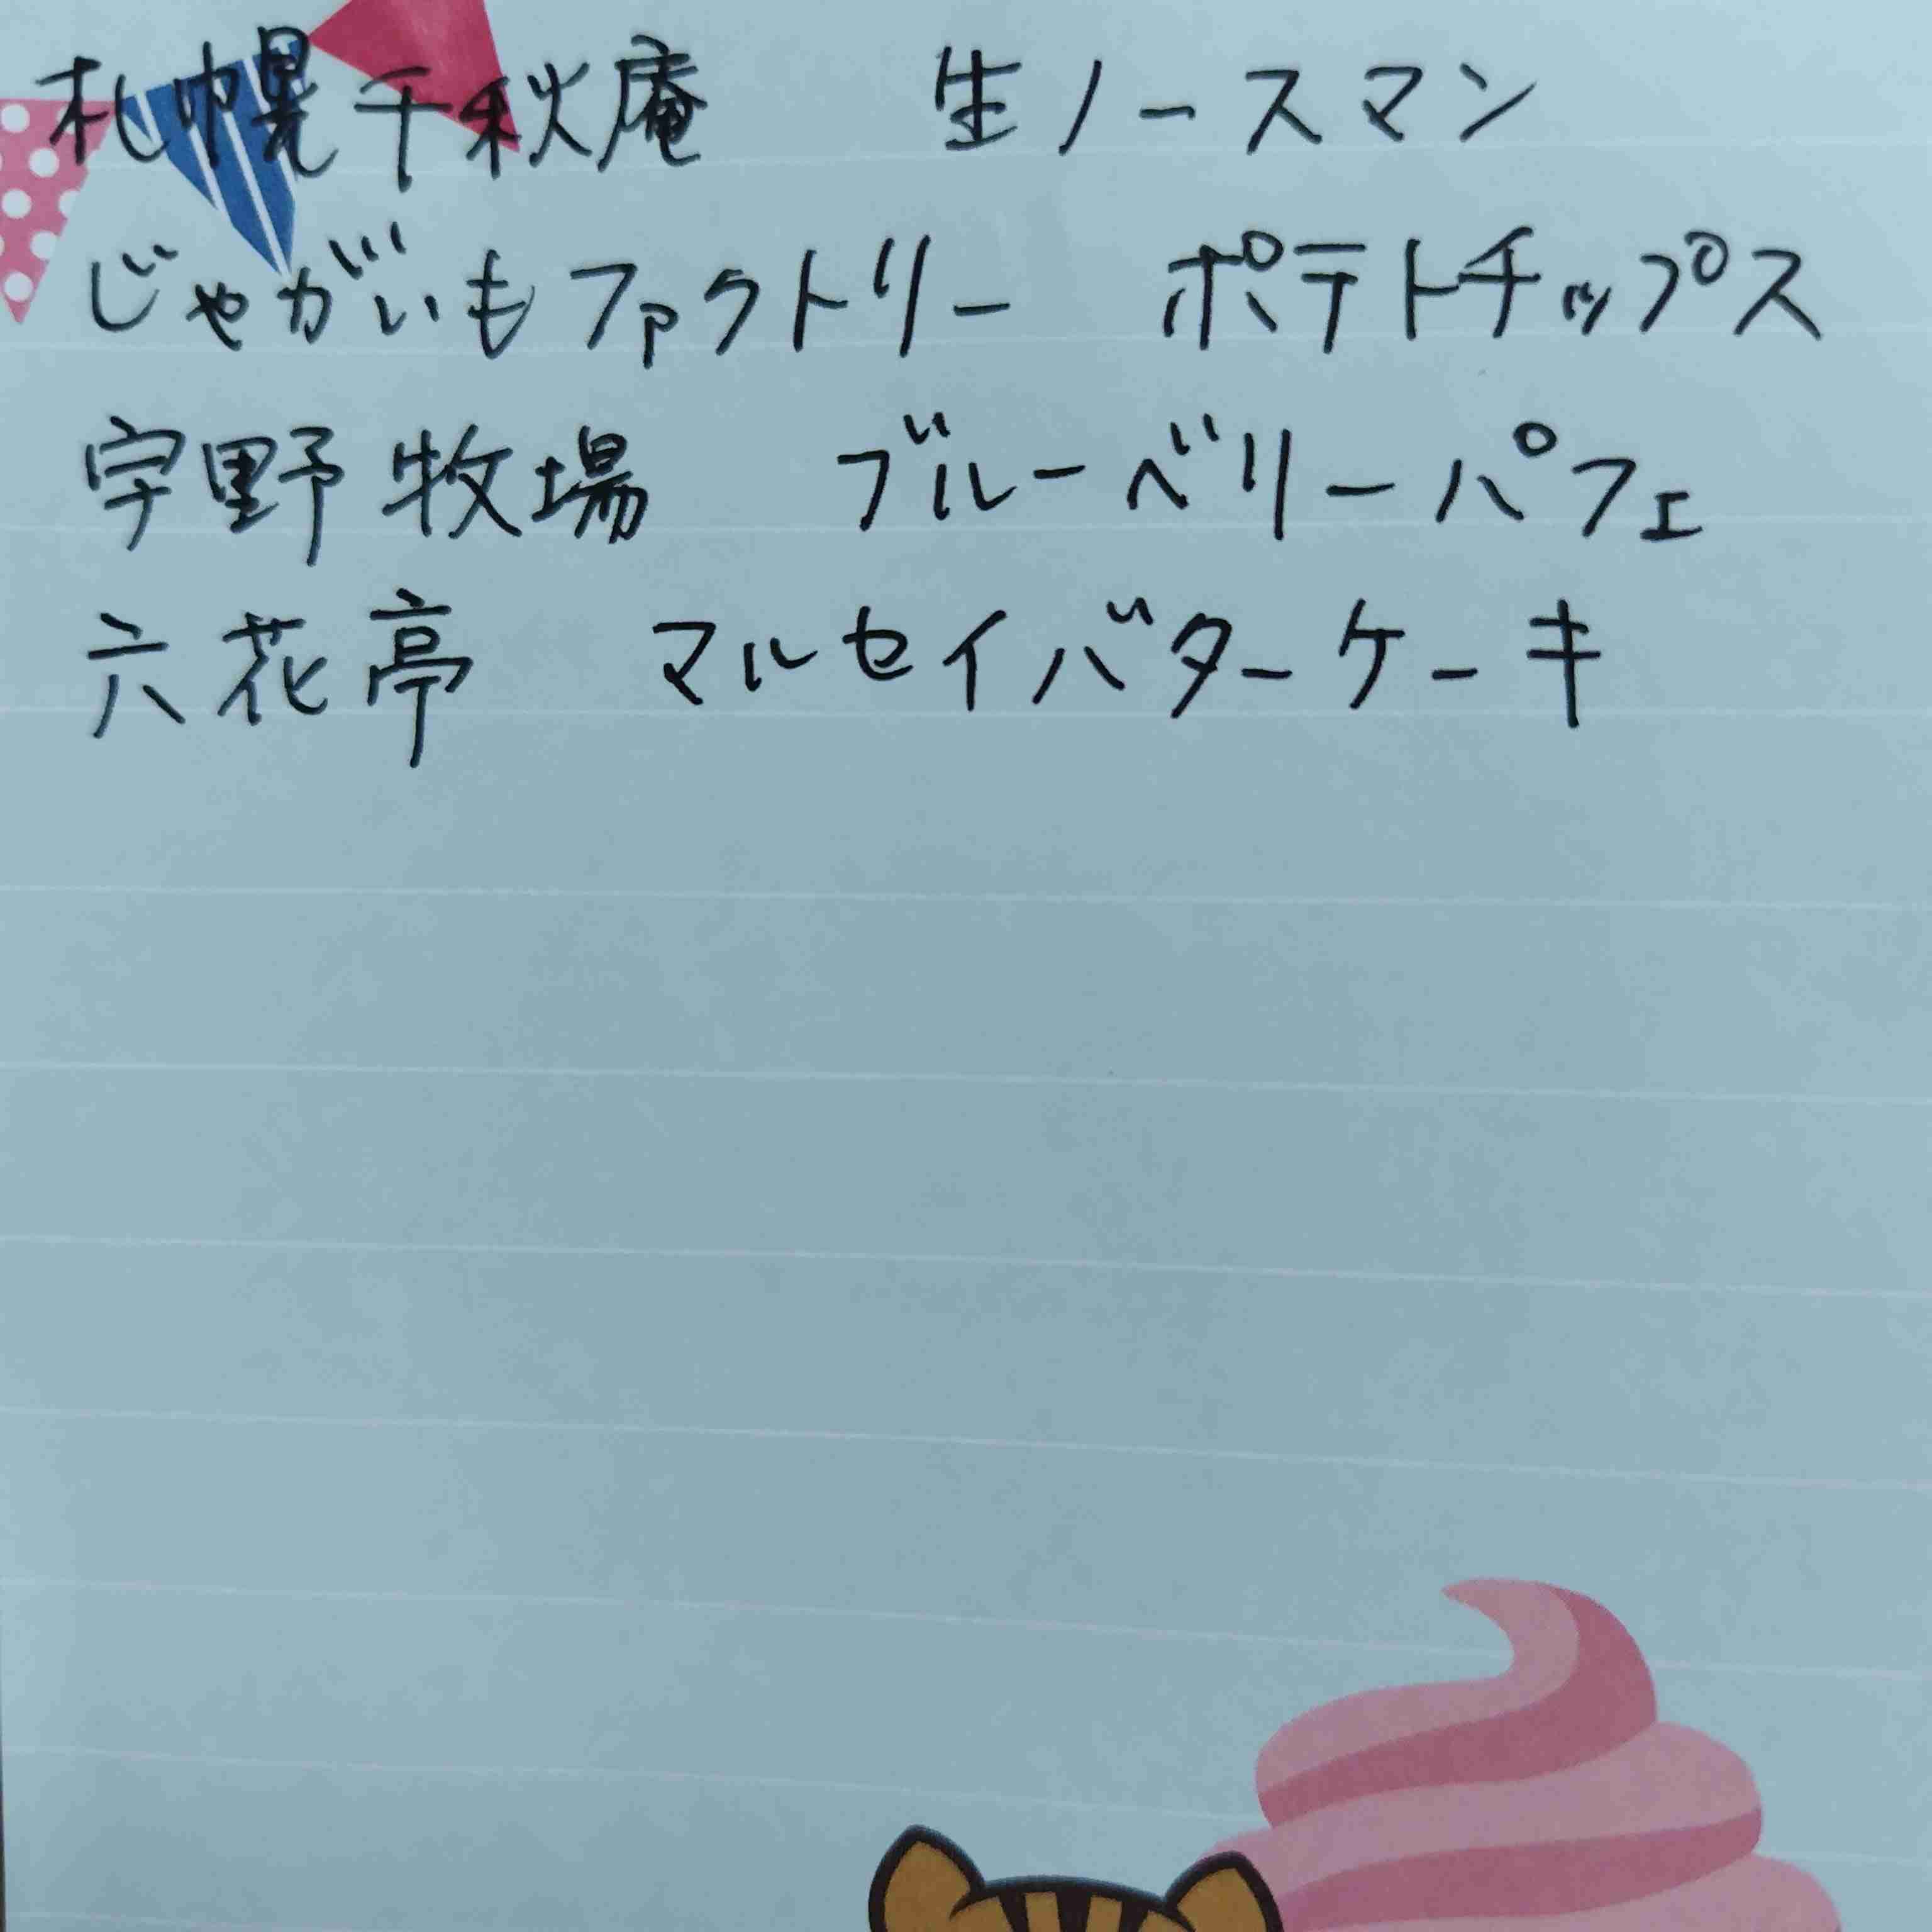 札幌千秋庵　生ノースマン
じゃがいもファクトリー　ポテトチップス
宇野牧場　ブルーベリーパフェ
六花亭　マルセイバターケーキ